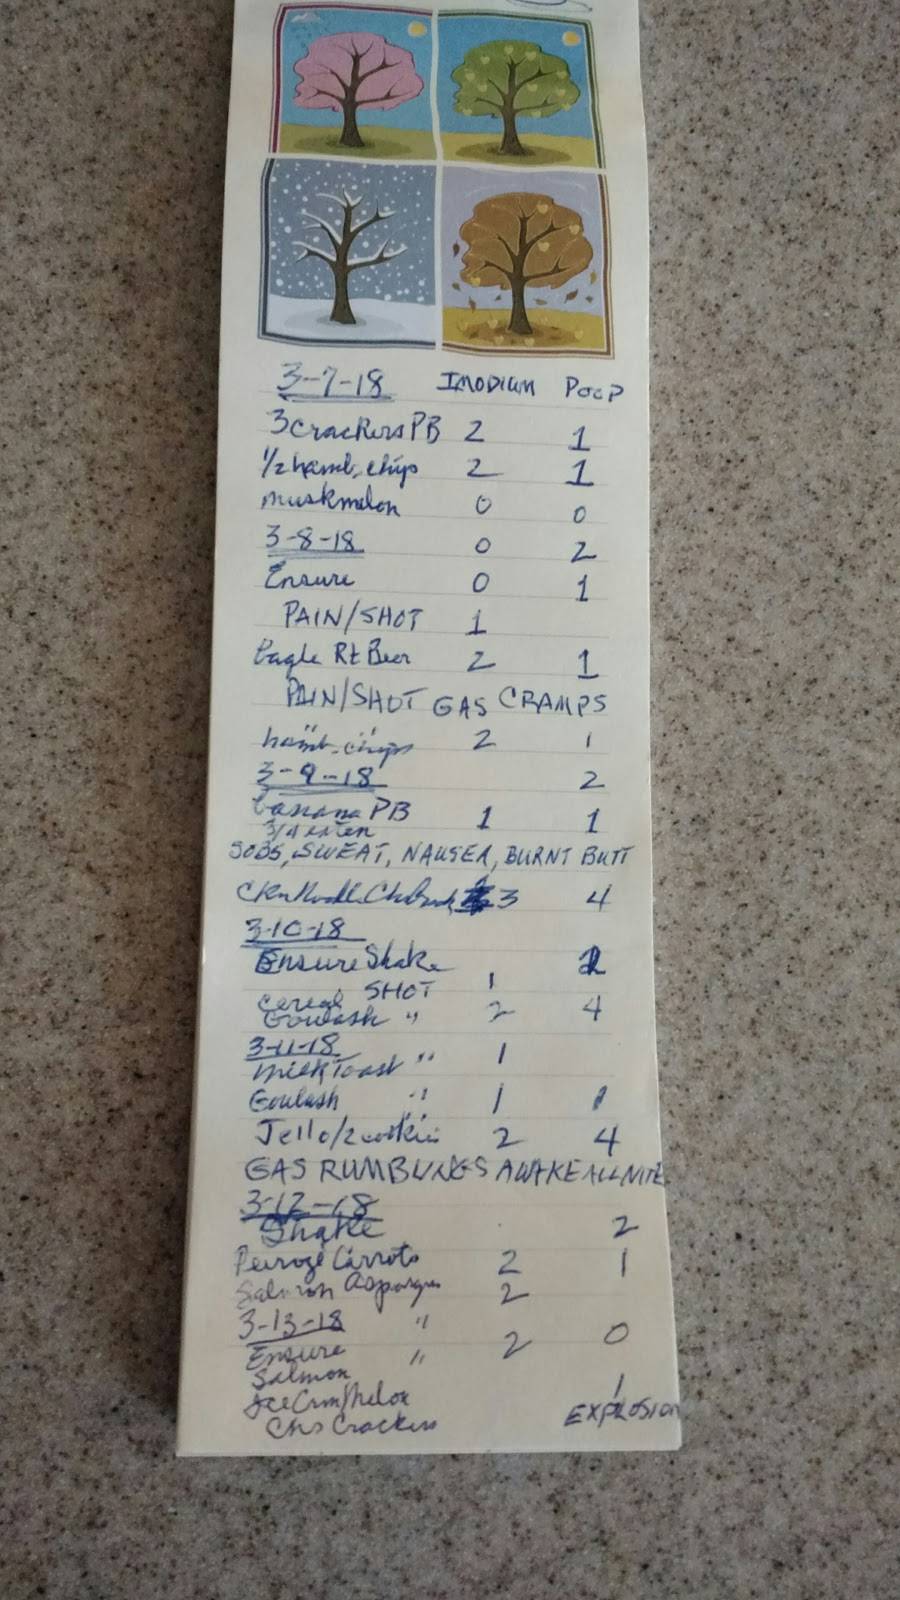 3-7-18 IMODIUM POOP
3 Crackers PB 2 1
1/2 hamb, chips 2 1
muskmelon 0 0
3-8-18 0 2
Ensure 0 1
PAIN/SHOT 1
Eagle Rt Beer 2 1
PAIN/SHOT GAS CRAMPS
hamb-chips 2 1
3-9-18 2
banana PB 1 1
3/4 eaten
SOBS, SWEAT, NAUSEA, BURNT BUTT
Ckn Noodle 3 4
3-10-18
Ensure Shake
SHOT 1
cereal
Goulash " 2 4
3-11-18
Milk Toast " 1
Goulash " 1 1
Jello/2 cookies 2 4
GAS RUMBLINGS AWAKE ALL NITE
3-12-18
Shake 2
Peirogi Carrots 2 1
Salmon Asparagus 2
3-13-18 "
Ensure " 2 0
Salmon
Ice Crm/Melon 1
Chs Crackers EXPLOSION